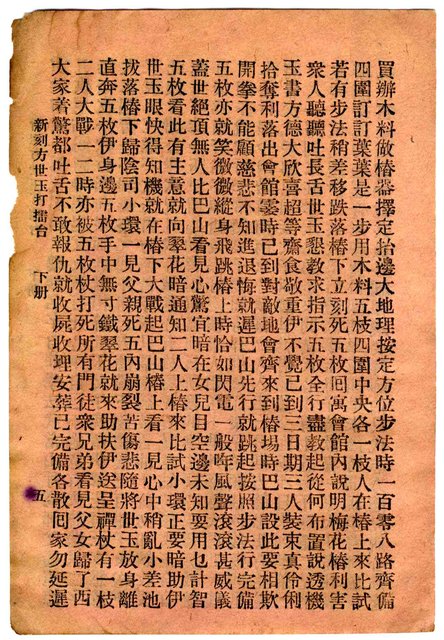 買辦木料做樁器擇定抬邊大地理按定方位步法時一百零八路齊備
四圍訂訂葉葉是一步用木料五枝四圍中央各一枝人在樁上來比試
若有步法稍差移跌落樁下立刻死五枚囘寓會館內說明梅花樁利害
衆人聽聽吐長舌世玉懇教求指示五枚全行盡教起從何布置說透機
玉書方德大欣喜超等齋食敬重伊不覺已到三日期三人裝束真伶俐
拾奪利落出會館霎時已到對敵地會齊來到樁場時巴山設此要相欺
開拳不能顧慈悲不知進退悔就遲巴山先行就跳起按照步法行完備
五枚亦就笑微微縱身飛跳樁上時恰如閃電一般咋風聲滾滾甚威議
蓋世絕頂無人比巴山看見心驚宜暗在女兒目空邊未知要用乜計智
五枚看此有主意就向翠花暗通知二人上樁來比試小環正要暗助伊
世玉眼快得知機就在樁下大戰起巴山樁上看一見心中稍亂小差池
拔落樁下歸陰司小環一見父親死五內崩裂苦傷悲隨將世玉放身離
直奔五枚伊身邊五枚手中無寸鐵翠花就來助扶伊送呈禪杖有一枝
二人大戰一二時亦被五枚杖打死所有門徒衆兄弟看見父女歸了西
大家着驚都吐舌不敢報仇就收屍收理安葬已完備各散囘家勿延遲
新刻方世玉打擂台 下册 五